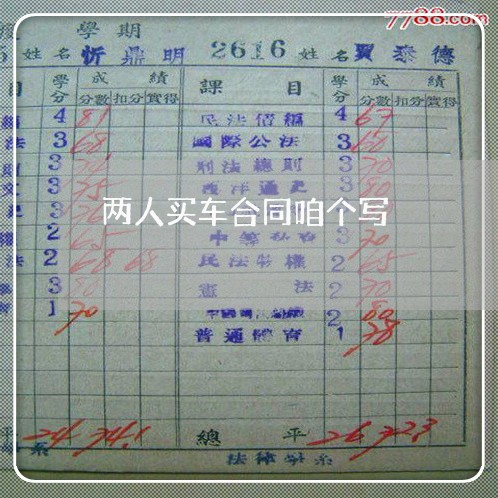 7788.com
度 學期
5 姓名 忻鼎明 2616 姓名 賈泰德
目 學分 成績 課目 學分 成績
分數 扣分 實得 分數 扣分 實得
編 4 81 民法債編 4 67
法 3 68 國際公法 3 60
則 3 刑法總則 3 70
文 3 75 西洋通史 3 80
史 3
两人买车合同咱个写
權 2 65 3 70
法 2 68 68 民法物權 2 65
3 80 憲法 2 70
育 1 70 2 80
普通體育 1 78
平 24 74.1 總平 26 72.3
系 法律學系